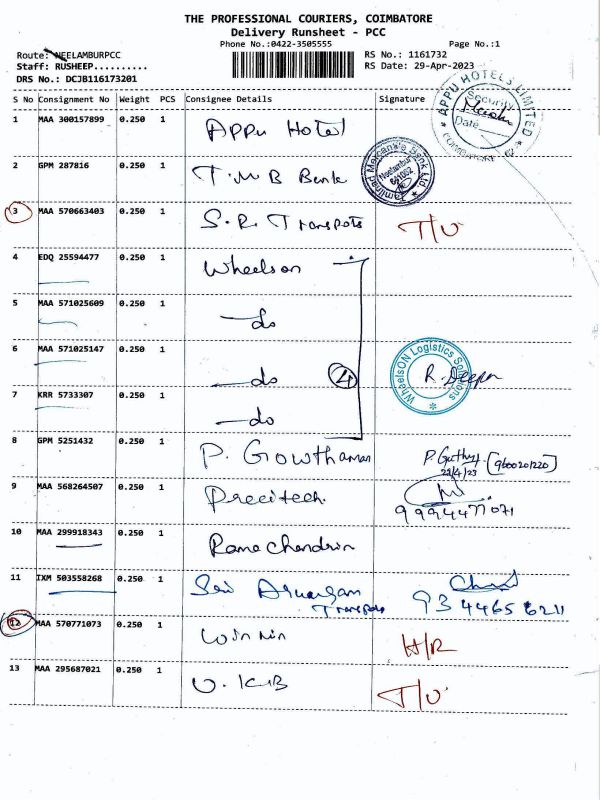 THE PROFESSIONAL COURIERS, COIMBATORE
Delivery Runsheet - PCC
Phone No.:0422-3505555 Page No.:1
Route: NEELAMBURPCC RS No.: 1161732
Staff: RUSHEEP.......... RS Date: 29-Apr-2023
DRS No.: DCJB116173201
S No Consignment No Weight PCS Consignee Details Signature
APPU HOTELS LIMITED
Security
Date
COIMBATORE
1 MAA 300157899 0.250 1 Appu Hotel
2 GPM 287816 0.250 1 T.M B Bank
Tamilnad Mercantile Bank Ltd.
Neelambur
641062
3 MAA 570663403 0.250 1 S.R. Transpots T/U
4 EDQ 25594477 0.250 1 Wheelson
5 MAA 571025609 0.250 1 do
6 MAA 571025147 0.250 1 do 4
WheelsON Logistics Solutions
R. Deepa
7 KRR 5733307 0.250 1 do
8 GPM 5251432 0.250 1 P. Gowthaman
29/4/23
9 MAA 568264507 0.250 1 Precitech
10 MAA 299918343 0.250 1 Rama Chandrin
11 IXM 503558268 0.250 1 Sai
Transpots
12 MAA 570771073 0.250 1 H/R
13 MAA 295687021 0.250 1 U.KB T/U